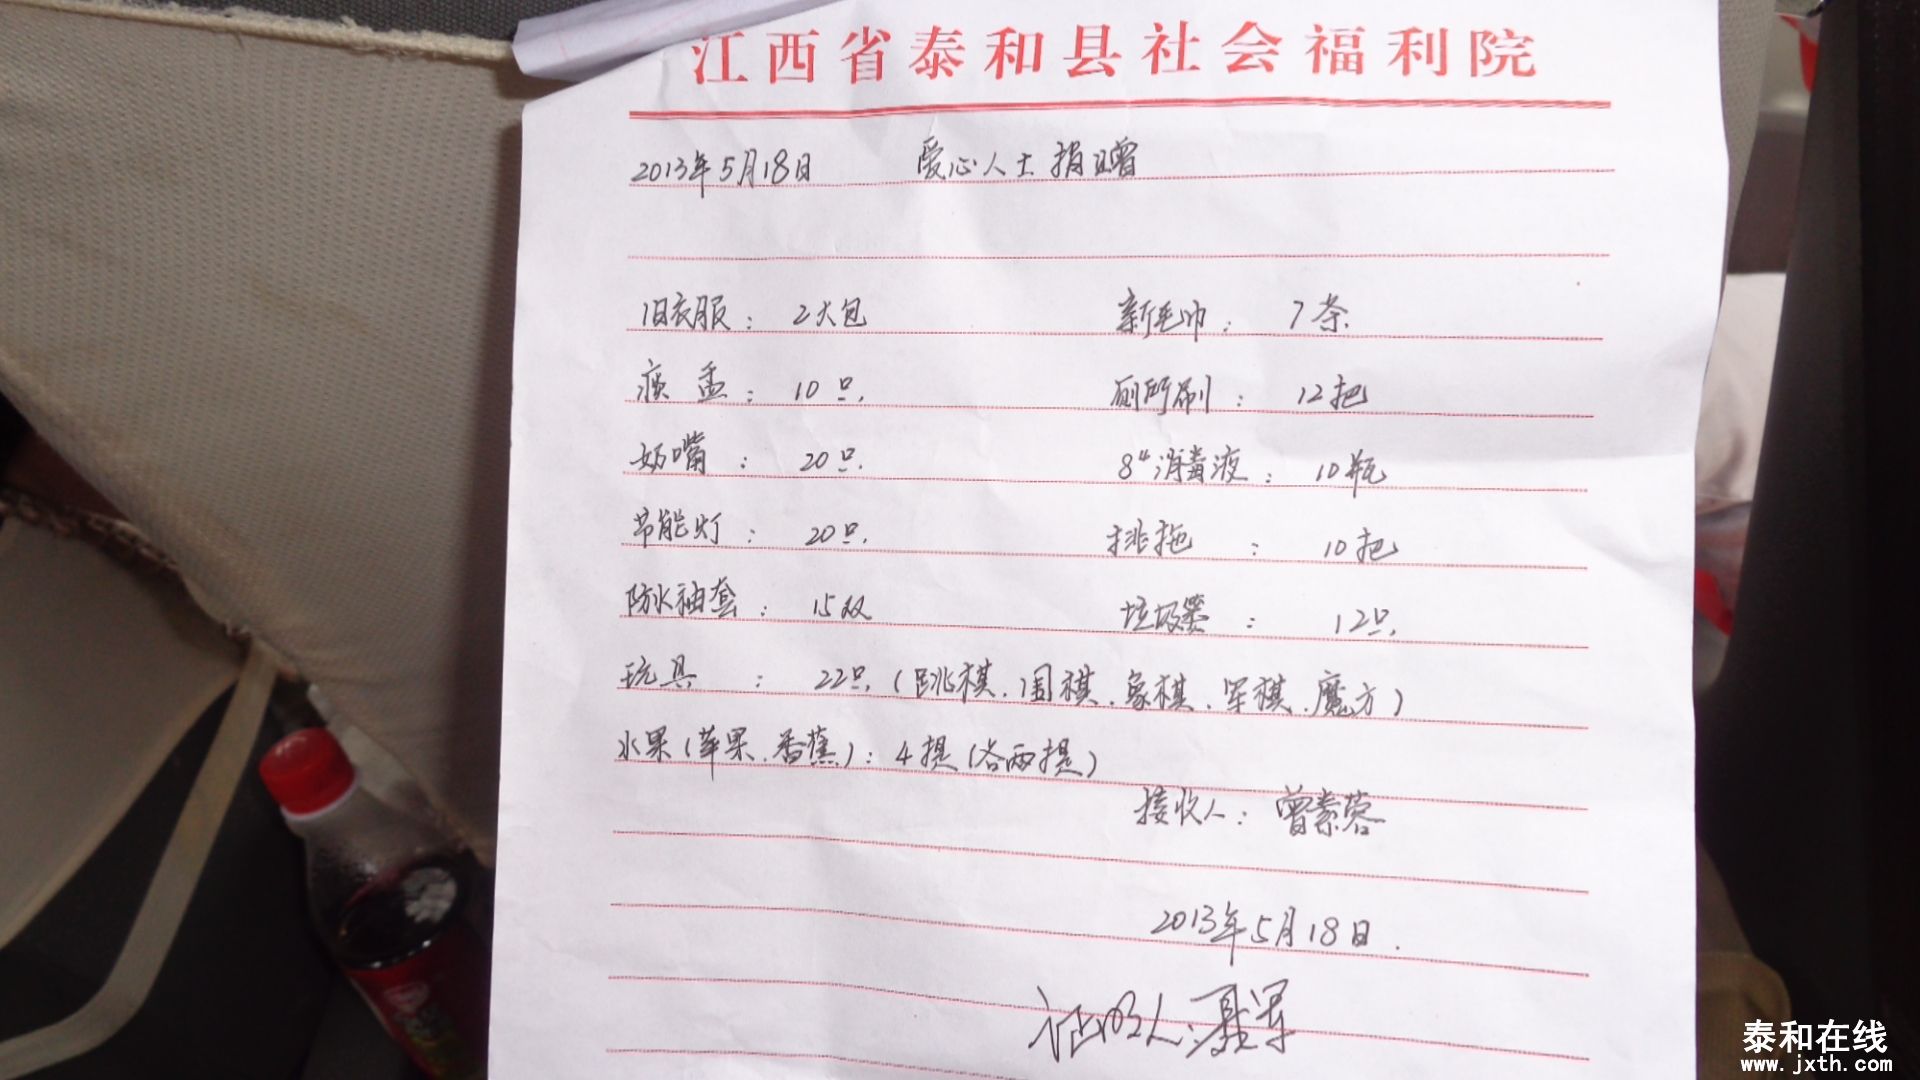 江西省泰和县社会福利院
2013年5月18日 爱心人士捐赠
旧衣服：2大包 新毛巾：7条
痰盂：10只 厕所刷：12把
奶嘴：20只 84消毒液：10瓶
节能灯：20只 排拖：10把
防水袖套：15双 垃圾篓：12只
玩具：22只（跳棋.围棋.象棋.军棋.魔方）
水果（苹果.香蕉）：4提（各两提）
接收人：曾素蓉
2013年5月18日.
证明人：聂军
泰和在线
www.jxth.com